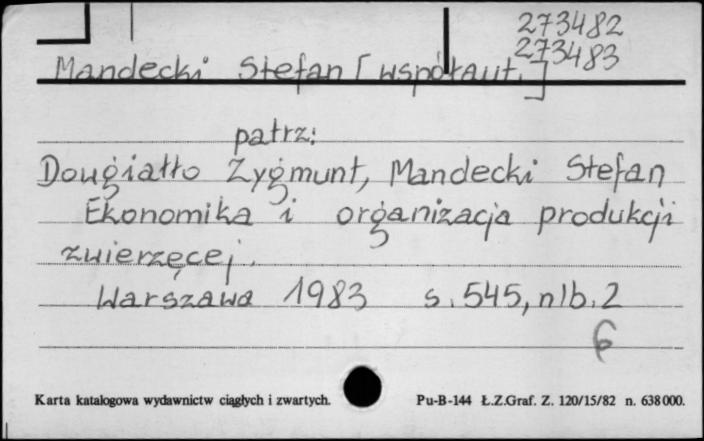 273482
273483
Mandecki Stefan [współaut.]
patrz:
Dougiałło Zygmunt, Mandecki Stefan
Ekonomika i organizacja produkcji
zwierzęcej.
Warszawa 1983 s. 545, nlb. 2
6
Karta katalogowa wydawnictw ciągłych i zwartych. Pu-B-144 Ł.Z.Graf. Z. 120/15/82 n. 638000.